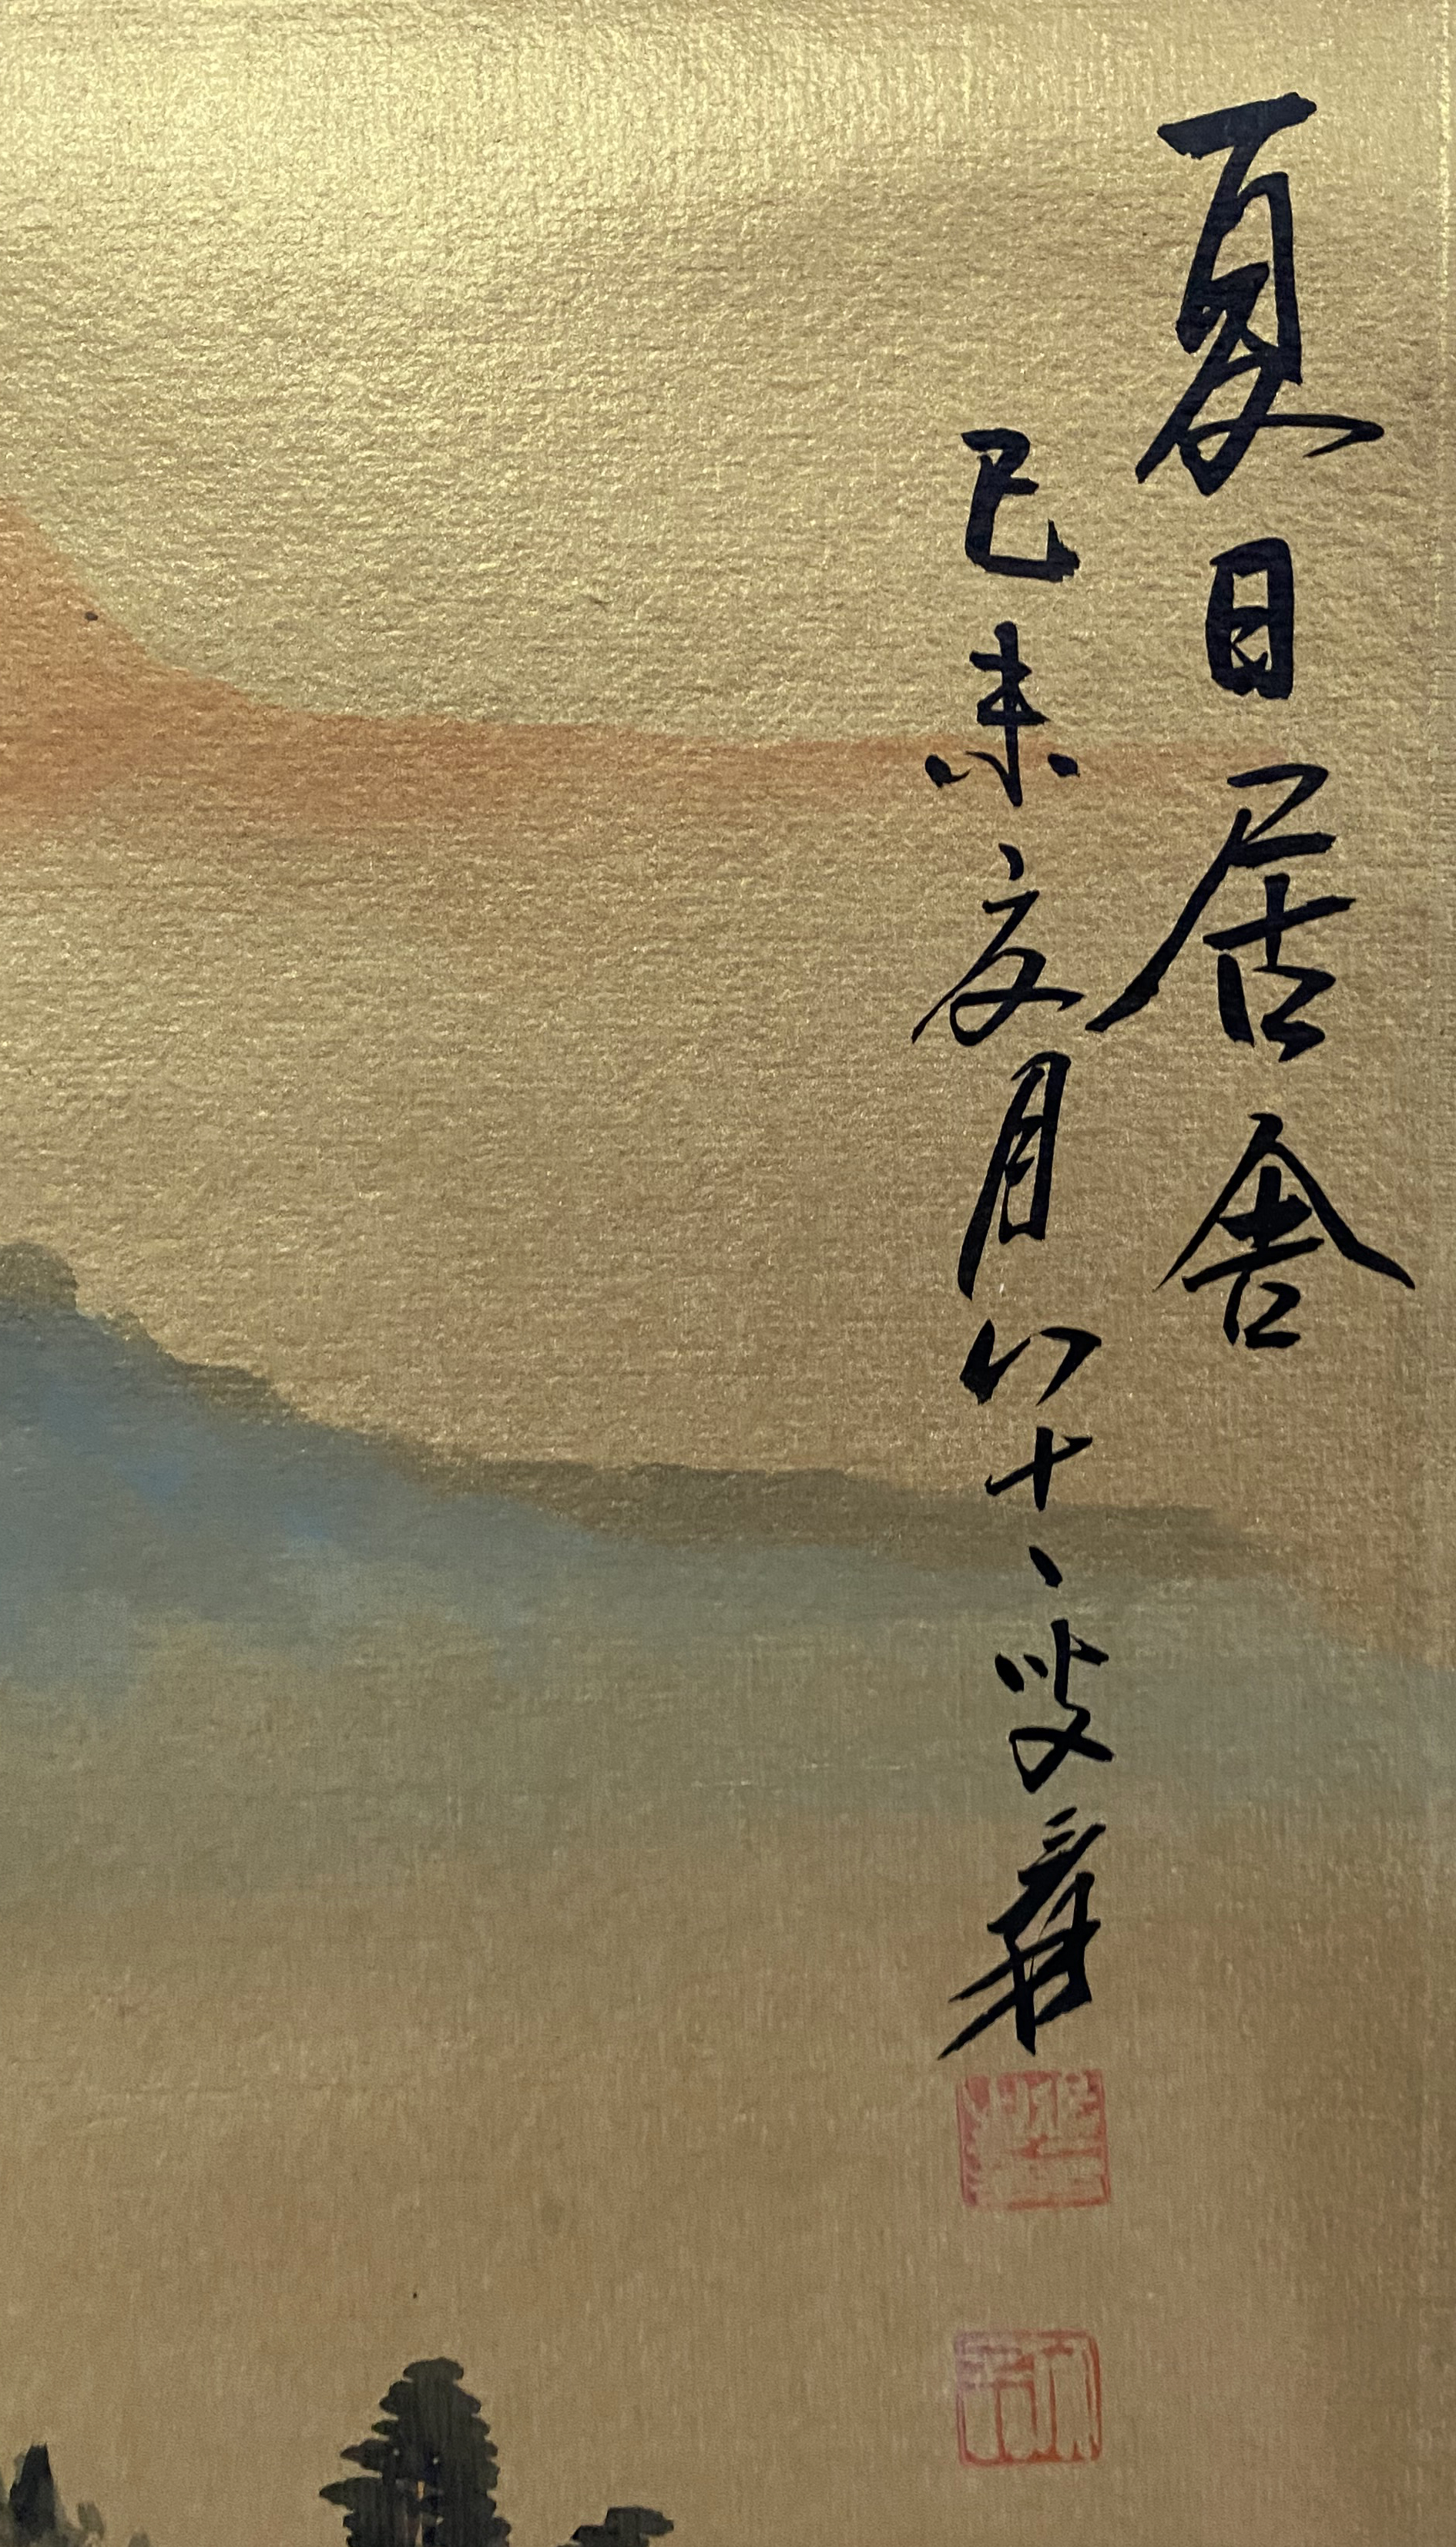 夏日居舍
己未夏月八十一叟爰